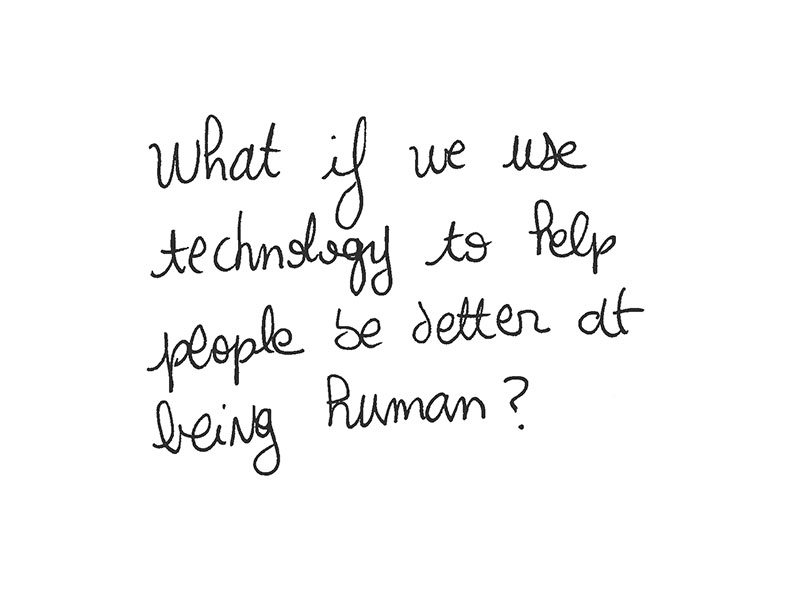 What if we use
technology to help
people be better at
being human?